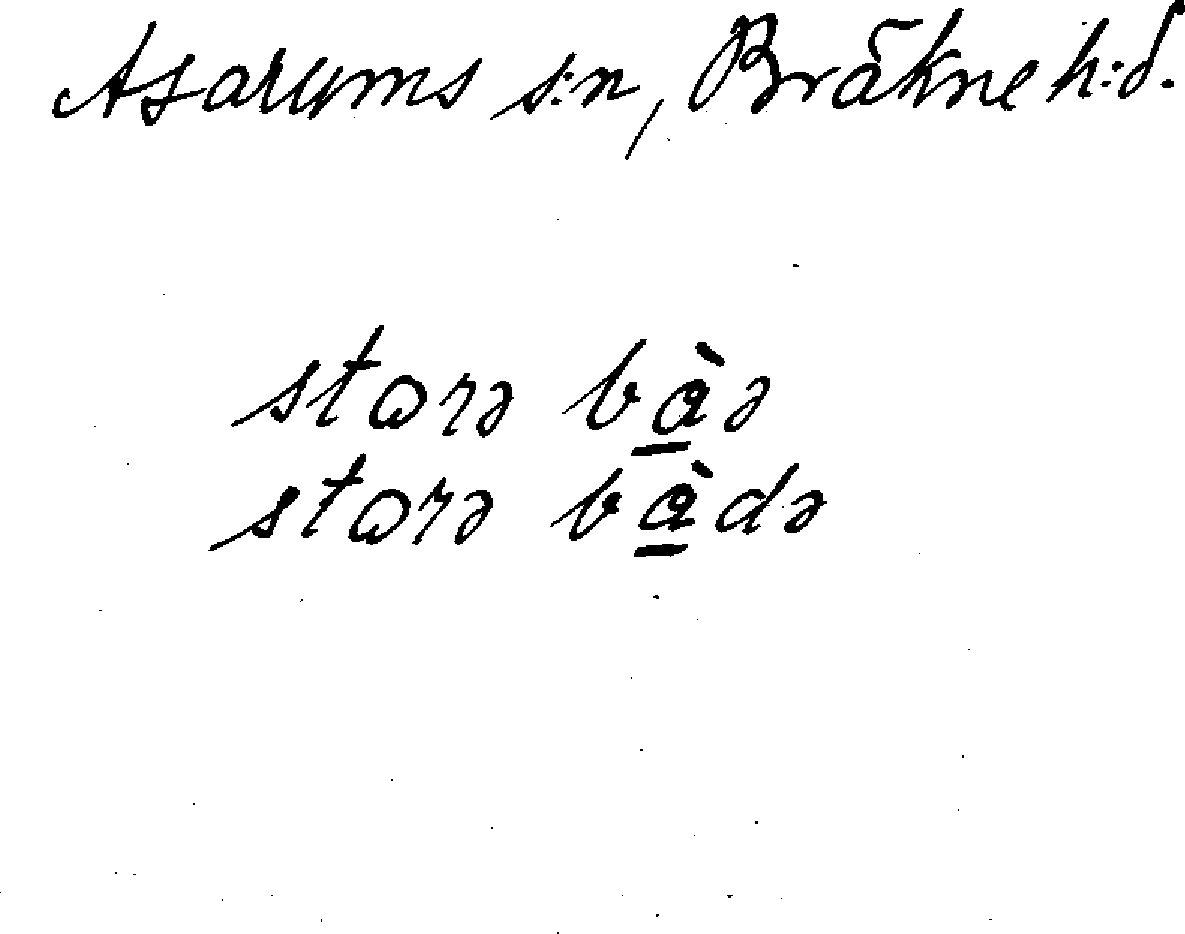 Asarums s:n, Bräkne h:d.
storə bàə
storə bàdə